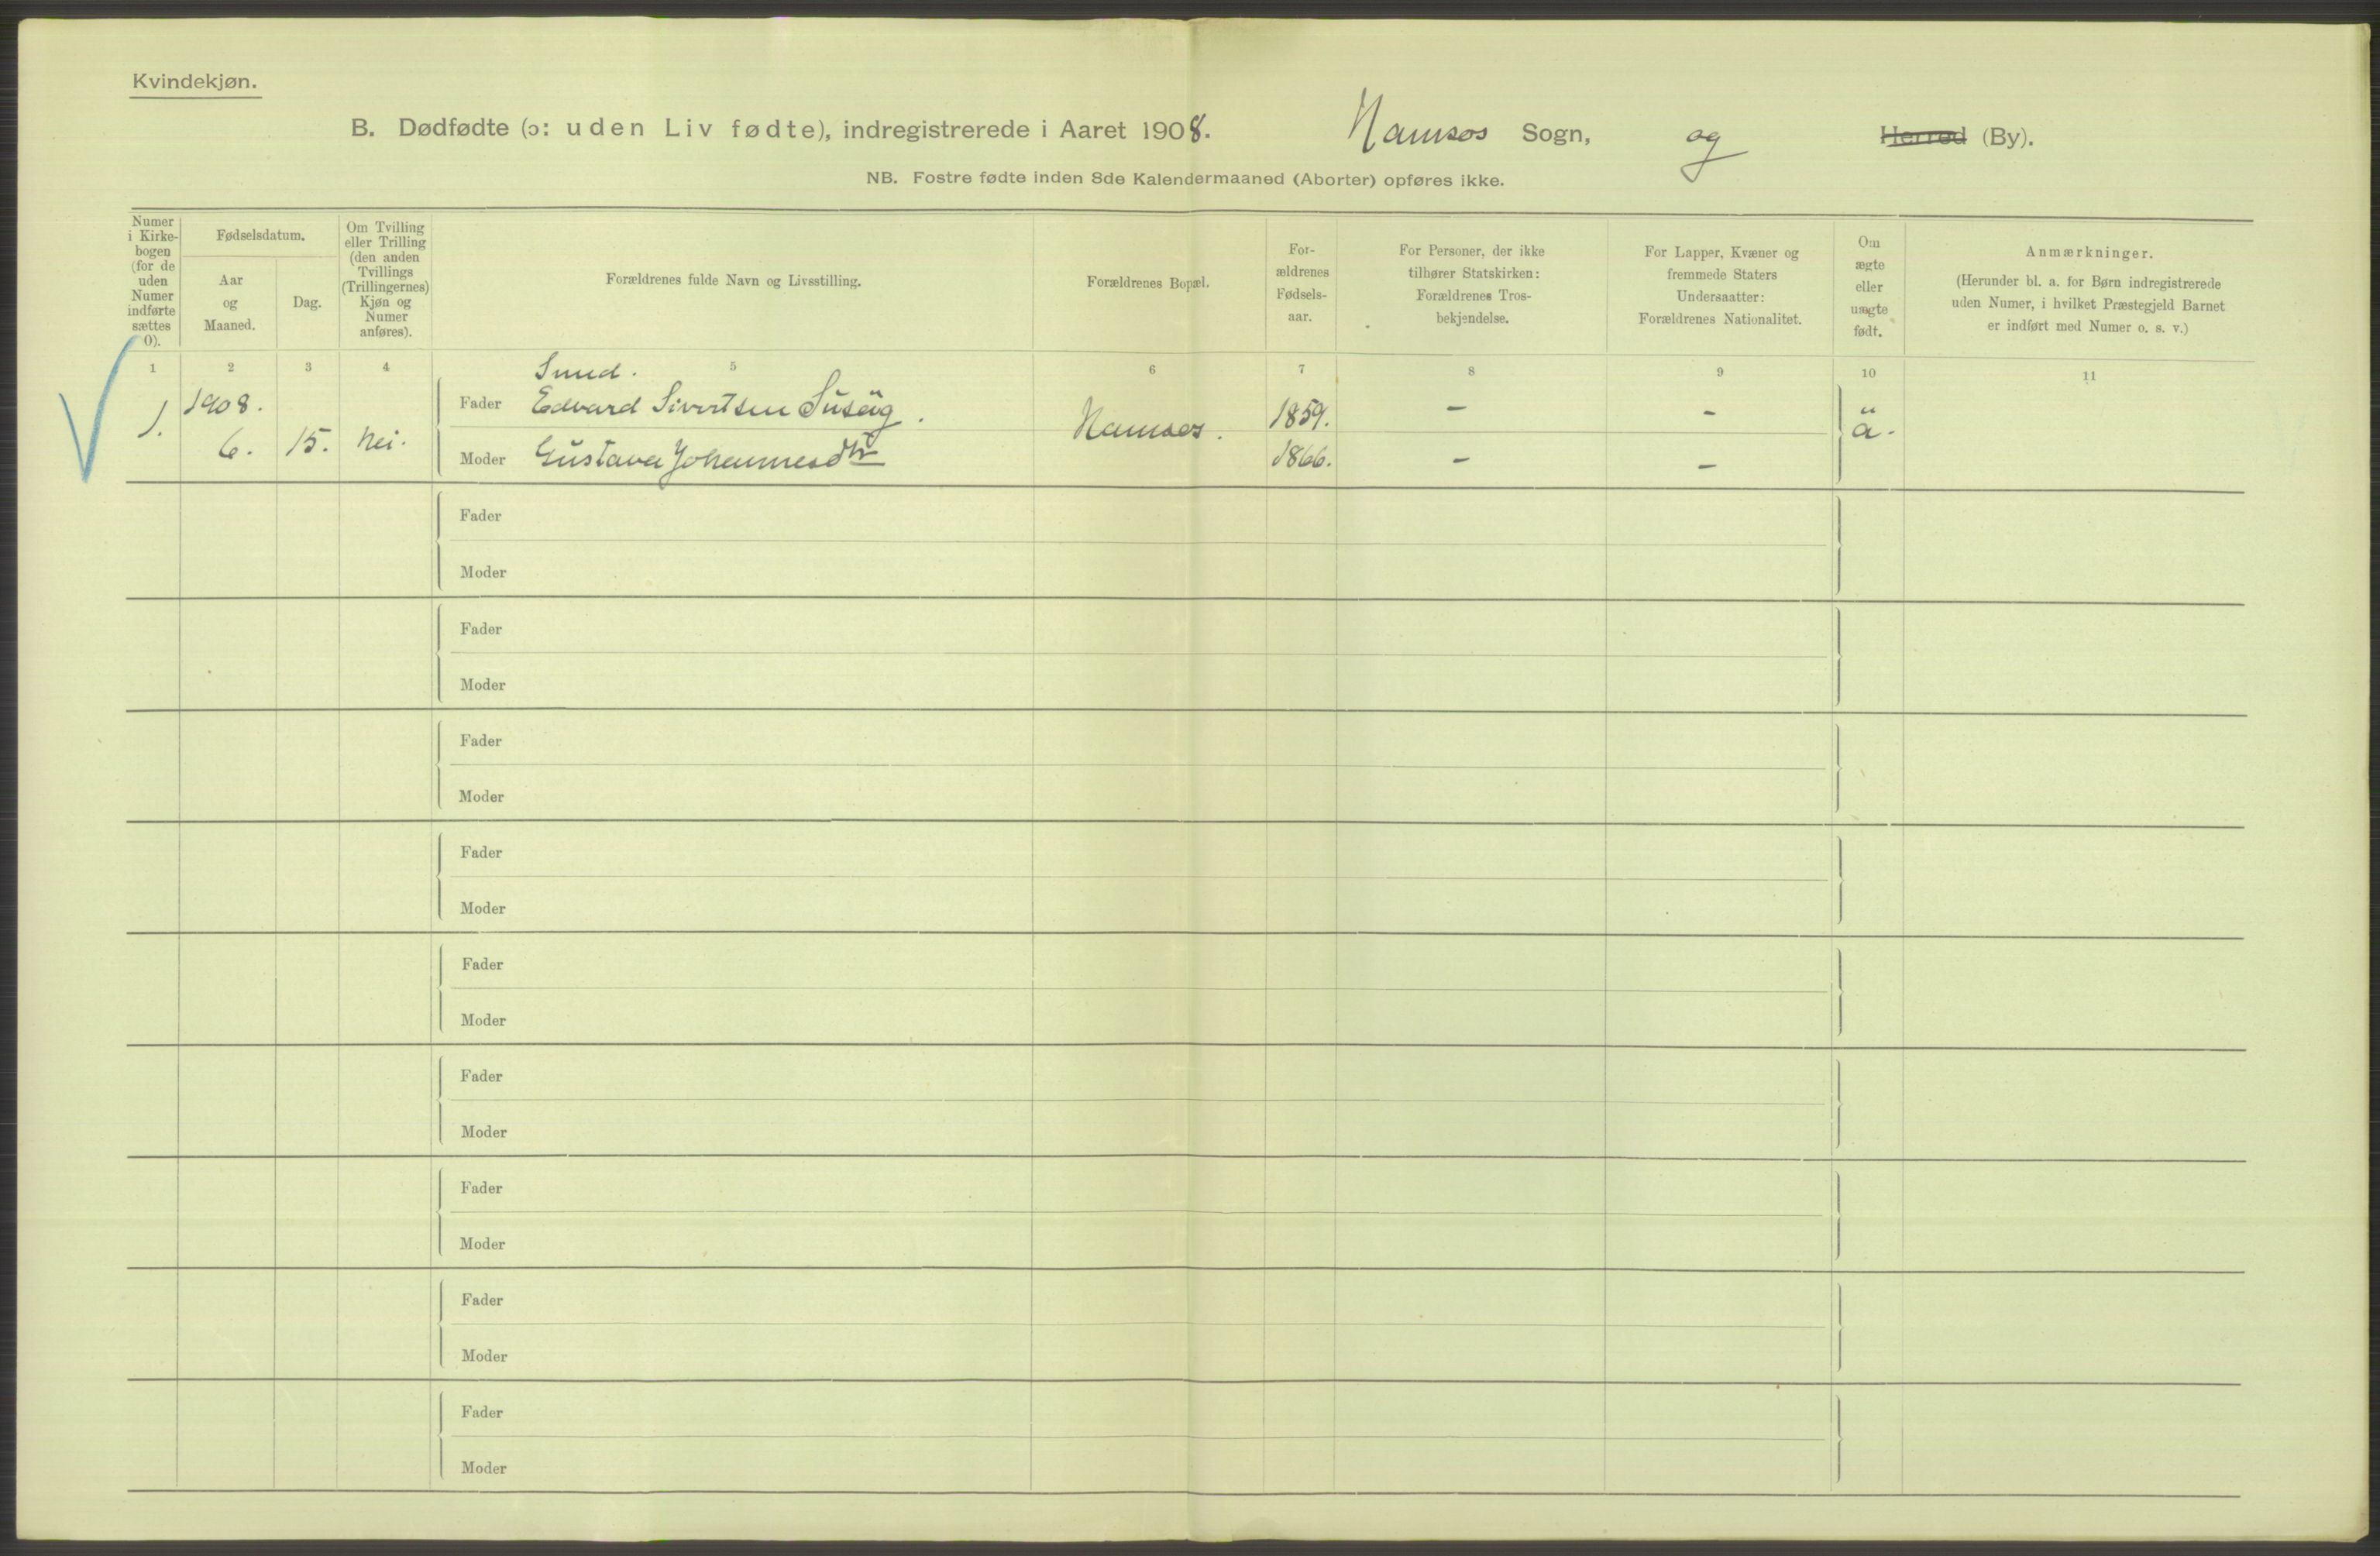 Kvindekjøn.
B. Dødfødte (ɔ: uden Liv fødte), indregistrerede i Aaret 1908. Namsos Sogn, og Herred (By).
NB. Fostre fødte inden 8de Kalendermaaned (Aborter) opføres ikke.
Numer i Kirke-bogen (for de uden Numer indførte sættes 0).
Fødselsdatum.
Aar og Maaned.
Dag.
Om Tvilling eller Trilling (den anden Tvillings (Trillingernes) Kjøn og Numer anføres).
Forældrenes fulde Navn og Livsstilling.
Forældrenes Bopæl.
For-ældrenes Fødsels-aar.
For Personer, der ikke tilhører Statskirken: Forældrenes Tros-bekjendelse.
For Lapper, Kvæner og fremmede Staters Undersaatter: Forældrenes Nationalitet.
Om ægte eller uægte født.
Anmærkninger.
(Herunder bl. a. for Børn indregistrerede uden Numer, i hvilket Præstegjeld Barnet er indført med Numer o. s. v.)
1 2 3 4 5 6 7 8 9 10 11
Smed.
1. 1908. 6. 15. Nei.
Fader Edvard Sivertsen Susåg. Namsos. 1859. – –
Moder Gustava Johannesdtr 1866. – –
ä.
Fader
Moder
Fader
Moder
Fader
Moder
Fader
Moder
Fader
Moder
Fader
Moder
Fader
Moder
Fader
Moder
Fader
Moder